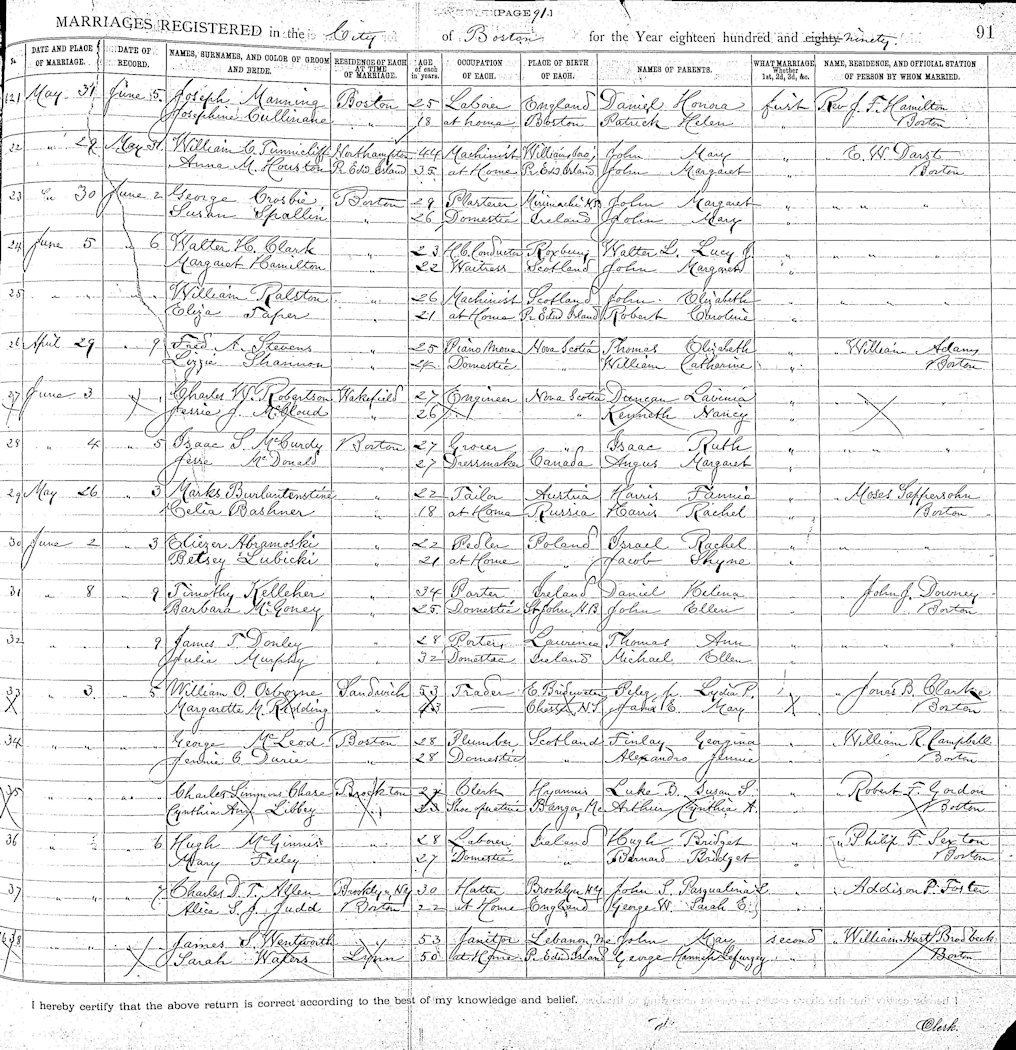 PAGE 91.
MARRIAGES REGISTERED in the City of Boston for the Year eighteen hundred and eighty ninety. 91
DATE AND PLACE OF MARRIAGE. DATE OF RECORD. NAMES, SURNAMES, AND COLOR OF GROOM AND BRIDE. RESIDENCE OF EACH AT TIME OF MARRIAGE. AGE of each in years. OCCUPATION OF EACH. PLACE OF BIRTH OF EACH. NAMES OF PARENTS. WHAT MARRIAGE Whether 1st, 2d, 3d, &c. NAME, RESIDENCE, AND OFFICIAL STATION OF PERSON BY WHOM MARRIED.
May 31 June 5. Joseph Manning Boston 25 Laborer England Daniel Honora first Rev J. F. Hamilton
Josephine Cullinane " 18 at home Boston Patrick Helen " Boston
22 " 29 May 31 William C. Tunnicliff Northampton 44 Machinist John Mary " E. W. Darst
Anna M. Houston Pr. Edw Island 35 at Home Pr. Ed Island John Margaret " Boston
23 " 30 June 2 George Crosbie Boston 29 Plasterer Mirimachi N.B. John Margaret " " " "
Susan Spallin " 26 Domestic Ireland John Mary "
24 June 5 " 6 Walter H. Clark " 23 H.C. Conductor Roxbury Walter L. Lucy J. " " "
Margaret Hamilton " 22 Waitress Scotland John Margaret "
25 " " " William Ralston " 26 Machinist Scotland John Elizabeth " " "
Eliza Taper " 21 at Home Pr. Edw Island Robert Caroline "
26 April 29 " 9 Fred A. Stevens " 25 Piano Move Nova Scotia Thomas Elizabeth " William Adams
Lizzie Shannon " 24 Domestic " William Catharine " Boston
27 June 3 " Charles W. Robertson Wakefield 27 Engineer Nova Scotia Duncan Lavinia "
Jessie J. McCloud " 26 " Kenneth Nancy "
28 " 4 " 5 Isaac S. McCurdy Boston 27 Grocer " Isaac Ruth " " "
Jesse McDonald " 27 Dressmaker Canada Angus Margaret "
29 May 26 " 3 Marks Burlantenstine " 22 Tailor Austria Harris Fannie " Moses Sappersohn
Celia Bashner " 18 at Home Russia Harris Rachel " Boston
30 June 2 " 3 Eliezer Abramoski " 22 Pedler Poland Israel Rachel " " "
Betsey Lubicki " 21 at Home " Jacob Shyne "
31 " 8 " 9 Timothy Kelleher " 34 Porter Ireland Daniel Helena " John J. Downey
Barbara McGoney " 25 Domestic St John, N.B John Ellen " Boston
32 " " " 9 James T. Donley " 28 Porter Lawrence Thomas Ann " " "
Julia Murphy " 32 Domestic Ireland Michael Ellen "
33 " 3. " 5 William O. Osborne Sandwich 53 Trader E. Bridgewater Peleg Jr. Lydia P. " Jonas B. Clarke
Margarette M. Redding " 43 — Mary " Boston
34 " " " " George McLeod Boston 28 Plumber Scotland Finlay Georgina " William R. Campbell
Jennie C. Durie " 28 Domestic " Alexandro Jennie " Boston
35 " " " " Charles Simmons Chase Brockton 27 Clerk Hyannis Luke B. Susan S. " Robert F. Gordon
Cynthia Ann Libbey " Bangor, Me Arthur Cynthia A. " Boston
36 " " " 6 Hugh McGinnis " 28 Laborer Ireland Hugh Bridget " Philip F. Sexton
Mary Feeley " 27 Domestic " Bernard Bridget " Boston
37 " " " 7 Charles D. T. Allen Brooklyn, N.Y 30 Hatter Brooklyn N.Y John S. Pasqualina L. " Addison P. Foster
Alice S. J. Judd Boston 22 at Home England George W. Sarah E. " "
" " " James S. Wentworth " 53 Janitor Lebanon, Me John May second William Hart Brodbeck
Sarah Waters Lynn 50 at Home Pr. Edw Island George Hannah Lefurgey " Boston
I hereby certify that the above return is correct according to the best of my knowledge and belief.
Clerk.